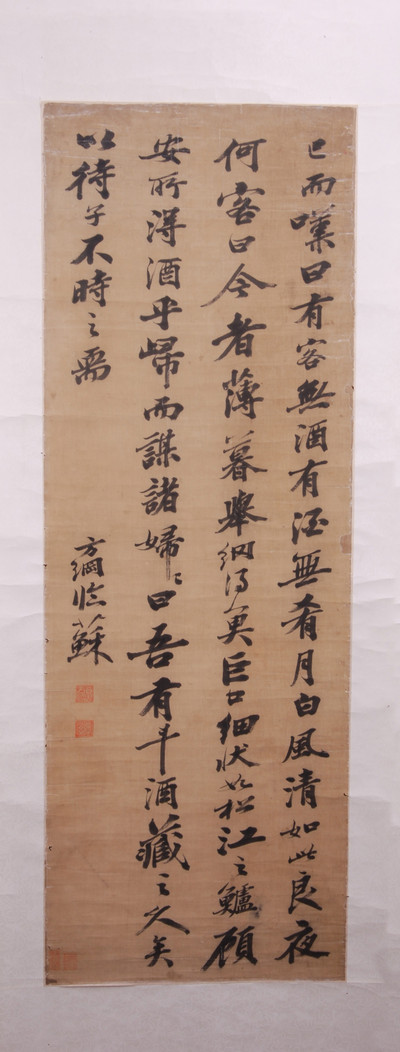 已而嘆曰有客無酒有酒無肴月白風清如此良夜
何客曰今者薄暮舉網得魚巨口細狀如松江之鱸顧
安所得酒乎歸而謀諸婦婦曰吾有斗酒藏之久矣
以待子不時之需
方綱臨蘇